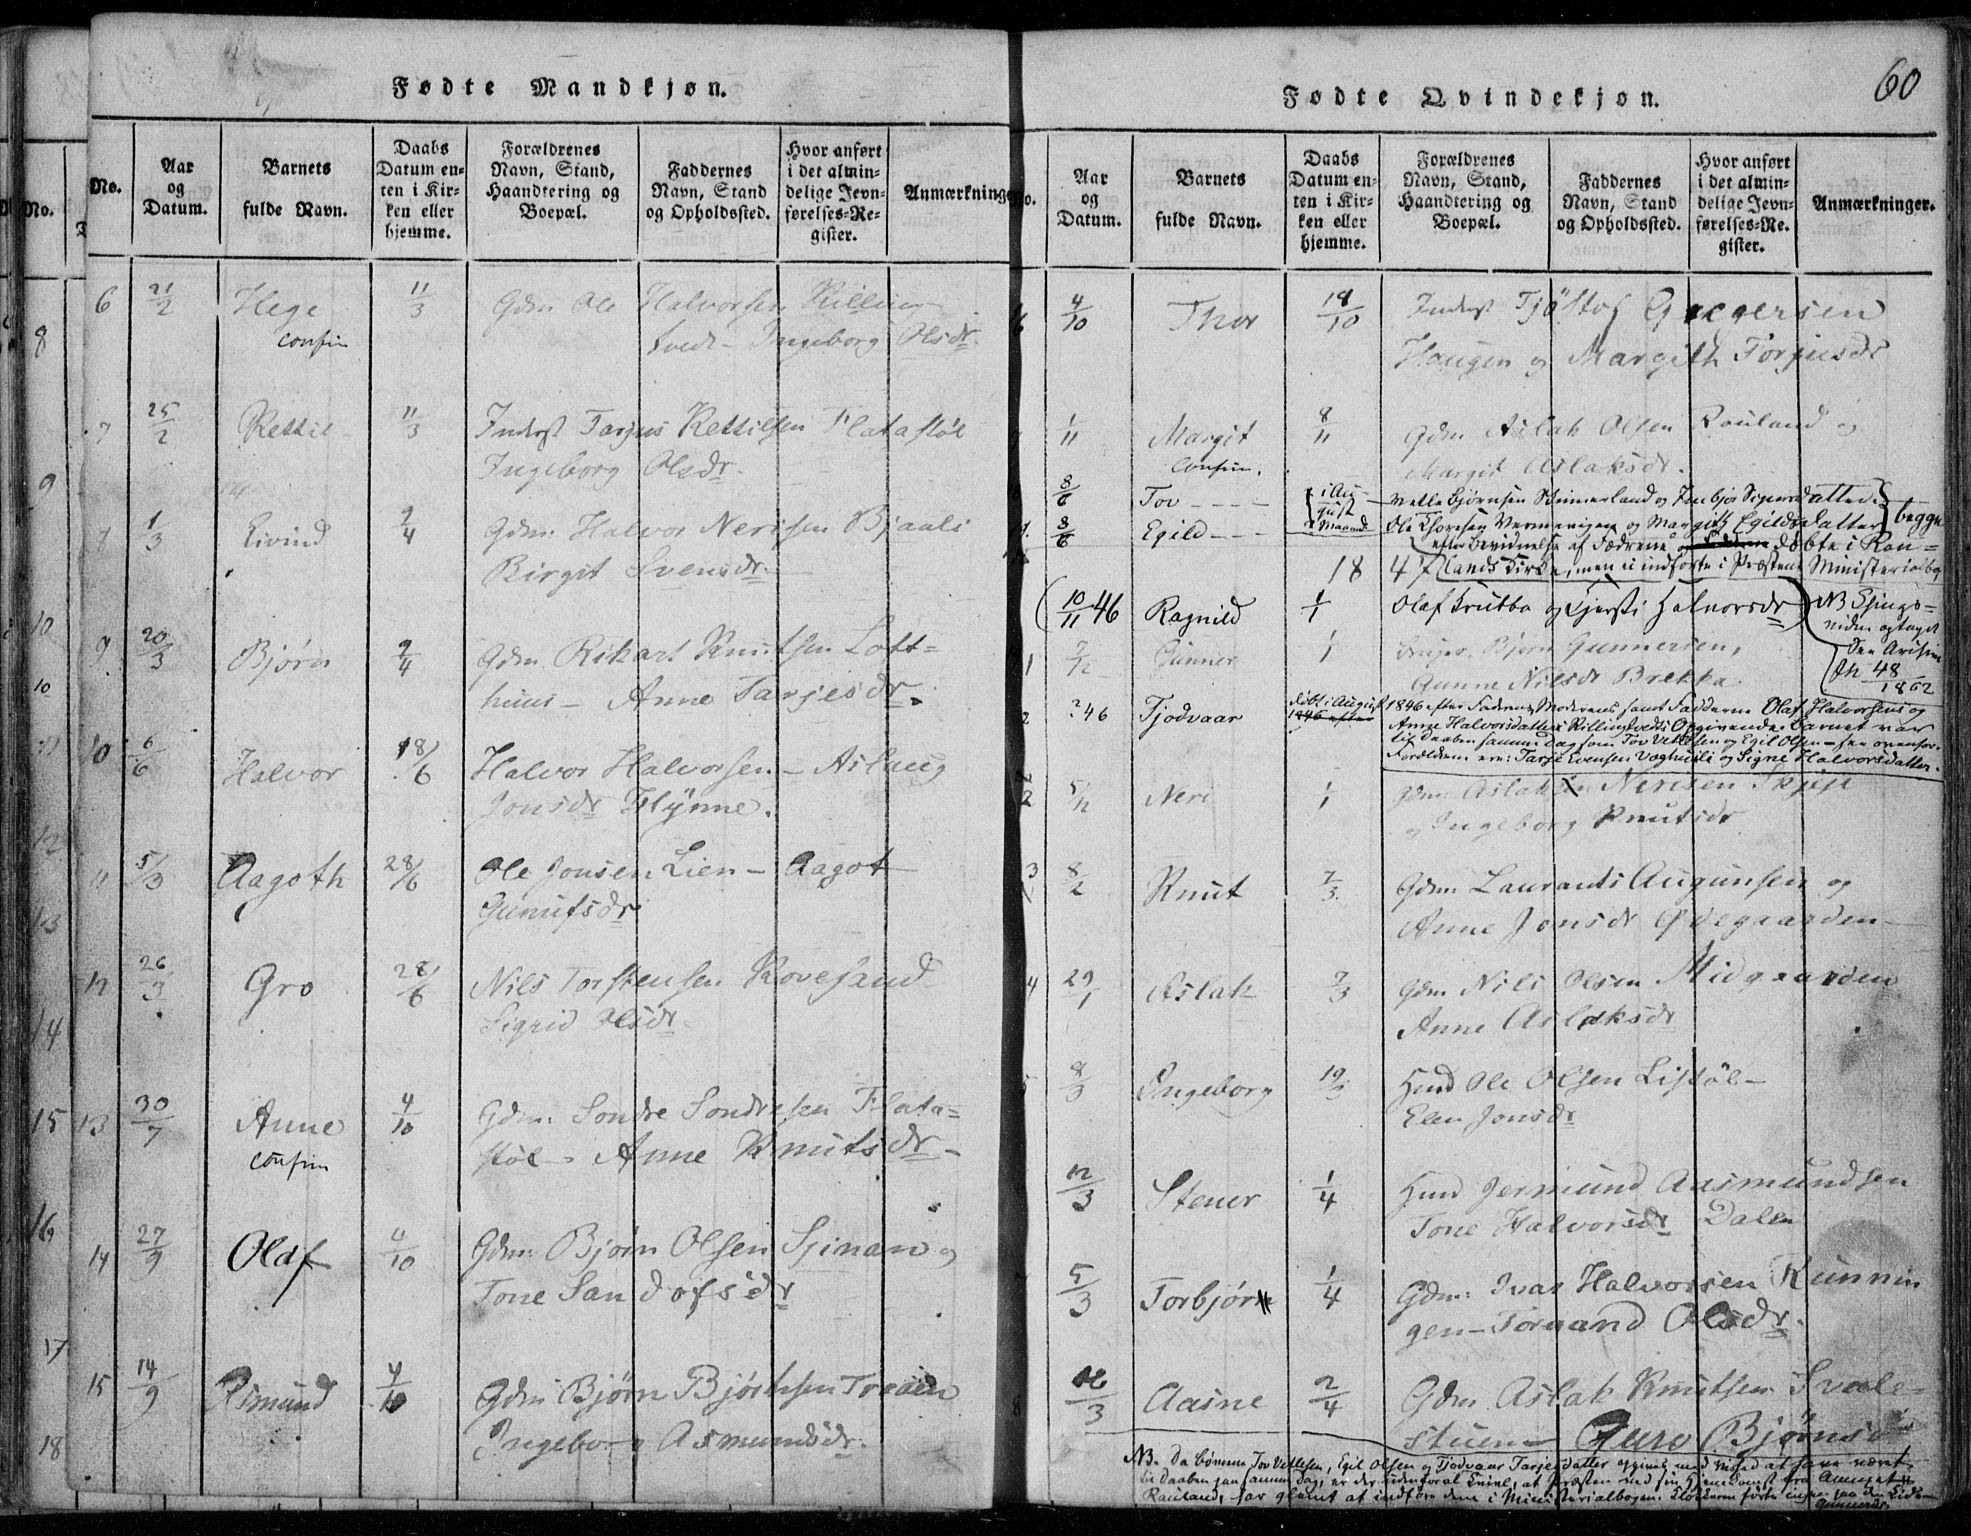 Fødte Mandkjøn.
No.
Aar
og
Datum.
Barnets
fulde Navn.
Daabs
Datum en-
ten i Kir-
ken eller
hjemme.
Forældrenes
Navn, Stand,
Haandtering og
Boepæl.
Faddernes
Navn, Stand
og Opholdssted.
Hvor anført
i det almin-
delige Jevn-
førelses-Re-
gister.
Anmærkninger
6 21/2 Hege 11/3 Gdm Ole Halvorsen Killing
confir tvedt - Ingeborg Olsdr.
7 25/2 Kettil 11/3 Inderst Tarjus Kettilsen Flatastøl
Ingeborg Olsdr.
7 1/3 Eivind 9/4 Gdm: Halvor Nerisen Bjaali
Birgit Svensdr.
9 20/3 Bjørn 9/4 Gdm. Rikart Knutsen Loft=
huus - Anne Tarjesdr.
10 6/6 Halvor 18/6 Halvor Halvorsen - Aslaug
Jonsdr Flynne.
11 5/3 Aagoth 28/6 Ole Jonsen Lien - Aagot
Gunufsdr
12 26/3 Gro 28/6 Nils Torstensen Kovesand
Sigrid Olsdr.
13 30/7 Anne 4/10 Gdm: Sondre Sondresen Flata=
confir støl - Anne Knutsdr -
14 27/9 Olaf 4/10 Gdm: Bjørn Olsen Sjinan og
Tone Sandofsdr
15 14/9 Asmund 4/10 Gdm Bjørn Bjørnsen Troaen
Ingeborg Asmundsdr.
8
9
10
10
12
13
14
15
16
17
18
60
Fødte Qvindekjøn.
No.
Aar
og
Datum.
Barnets
fulde Navn.
Daabs
Datum en-
ten i Kir-
ken eller
hjemme.
Forældrenes
Navn, Stand,
Haandtering og
Boepæl.
Faddernes
Navn, Stand
og Opholdssted.
Hvor anført
i det almin-
delige Jevn-
førelses-Re-
gister.
Anmærkninger.
16 4/10 Thor 18/10 Inderst Tjöstof Gregersen
Haugen og Margith Torjusdr
1/11 Margit 8/11 Gdm Aslak Olsen Rouland og
Confir. Margit Aslaksdr.
8/6 Tov - - - - i Au- Vetle Bjørnsen Steimerland og Inebjør Sigursdatter
8/6 Egild - - - gust Maaned Ole Thoresen Vermevigen og Margith Egildsdatter begge
efter Bevidnelse af Fædrene døbte i Rau=
lands Kirke, men ei indførte i Præstens Ministerialbog
18 47
10/11 46 Ragnild 1/1 Olaf Krubba og Kjersti Halvorsdr NB Sjings=
viden optaget
den
48
1862
1 7/12 Gunner 1/1 Bjørn Gunnersen,
Gunne Nilsdr Brekka.
2 ? 46 Tjodvaar døbt i August 1846 efter Faderens, Moderens samt Fadderne Olaf Halvorsens og
1846 efter Anne Halvorsdatters Killingtvedts Opgivende. Barnet var
til Daaben samme Dag som Tov Vetlesen og Egil Olsen - see ovenfor.
Forældrene ere: Tarje Evensen Vaghusli og Signe Halvorsdatter.
2 5/12 Neri 1/1 Gdm: Aslak Nerisen Skjeje
og Ingeborg Knutsdr
3 8/2 Knut 7/3 Gdm: Laurants Augunsen og
Anne Jonsdr Ødegaarden
4 29/1 Aslak 7/3 Gdm Nils Olsen Midgaarden
Anne Aslaksdr
5 8/3 Ingeborg 19/3 Huusmd Ole Olsen Listøl -
Elen Jonsdr
12/3 Stener 1/4 Huusmd Jermund Aasmundsen
Tone Halvorsdr Dalen
7 5/3 Torbjørn 1/4 Gdm: Ivar Halvorsen Runnin
gen - Tornand Olsdr.
8 26/3 Aasne 2/4 Gdm. Aslak Knutsen Svale=
stuen - Guro Bjørnsdr
NB. Da Børnene Tov Vetlesen, Egil Olsen og Tjodvaar Tarjesdatter opgives med Vished at have været
til Daaben paa samme Dag, er der udenfor al Tvivl, at Præsten ved sin Hjemkomst fra Annexet
Rauland, har glemt at indføre dem i Ministerialbogen.